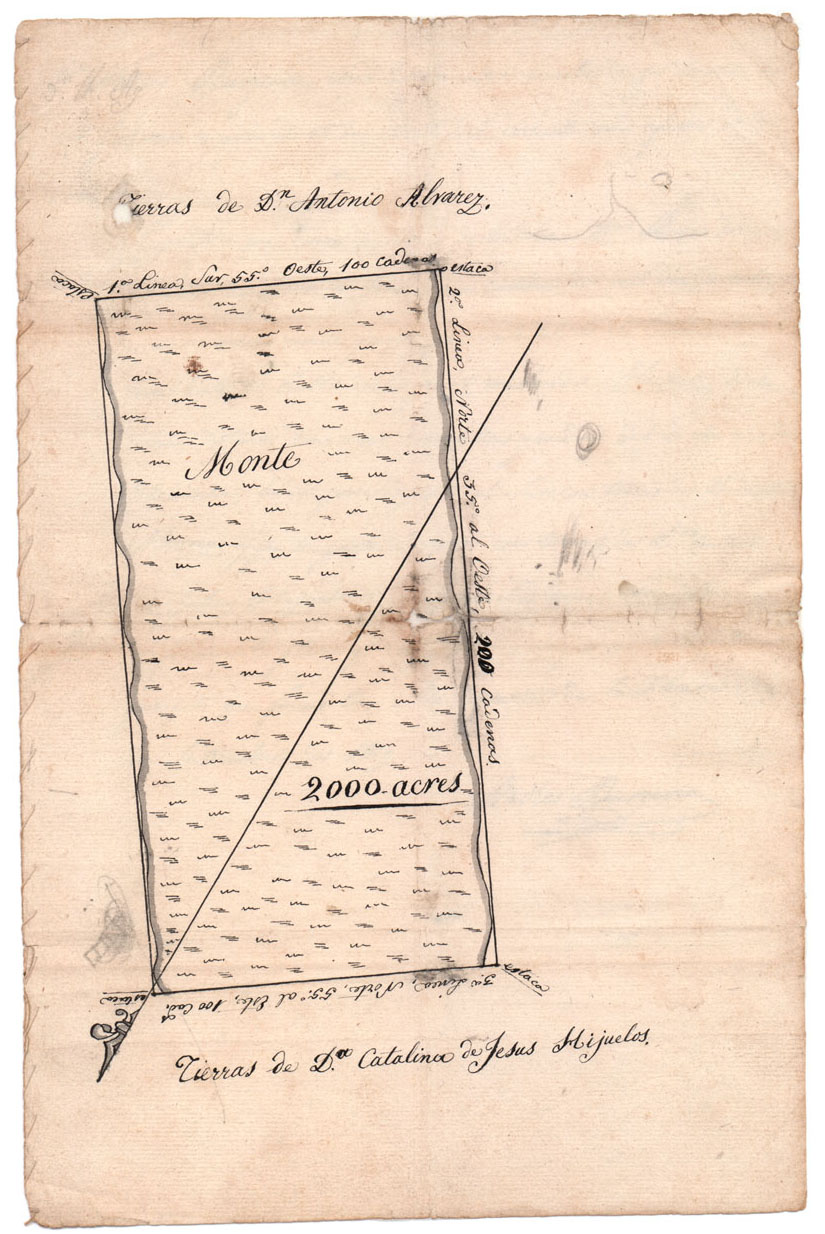 Tierras de D.ⁿ Antonio Alvarez.
estaca
1.ª Linea, Sur, 55.º Oeste, 100 cadenas
estaca
2.ª Linea, Norte 35.º al Oeste, 200 cadenas.
Monte
2000 acres
estaca
3.ª Linea, Norte, 55.º al Este, 100 Cad.ˢ
estaca
Tierras de D.ª Catalina de Jesus Hijuelos.